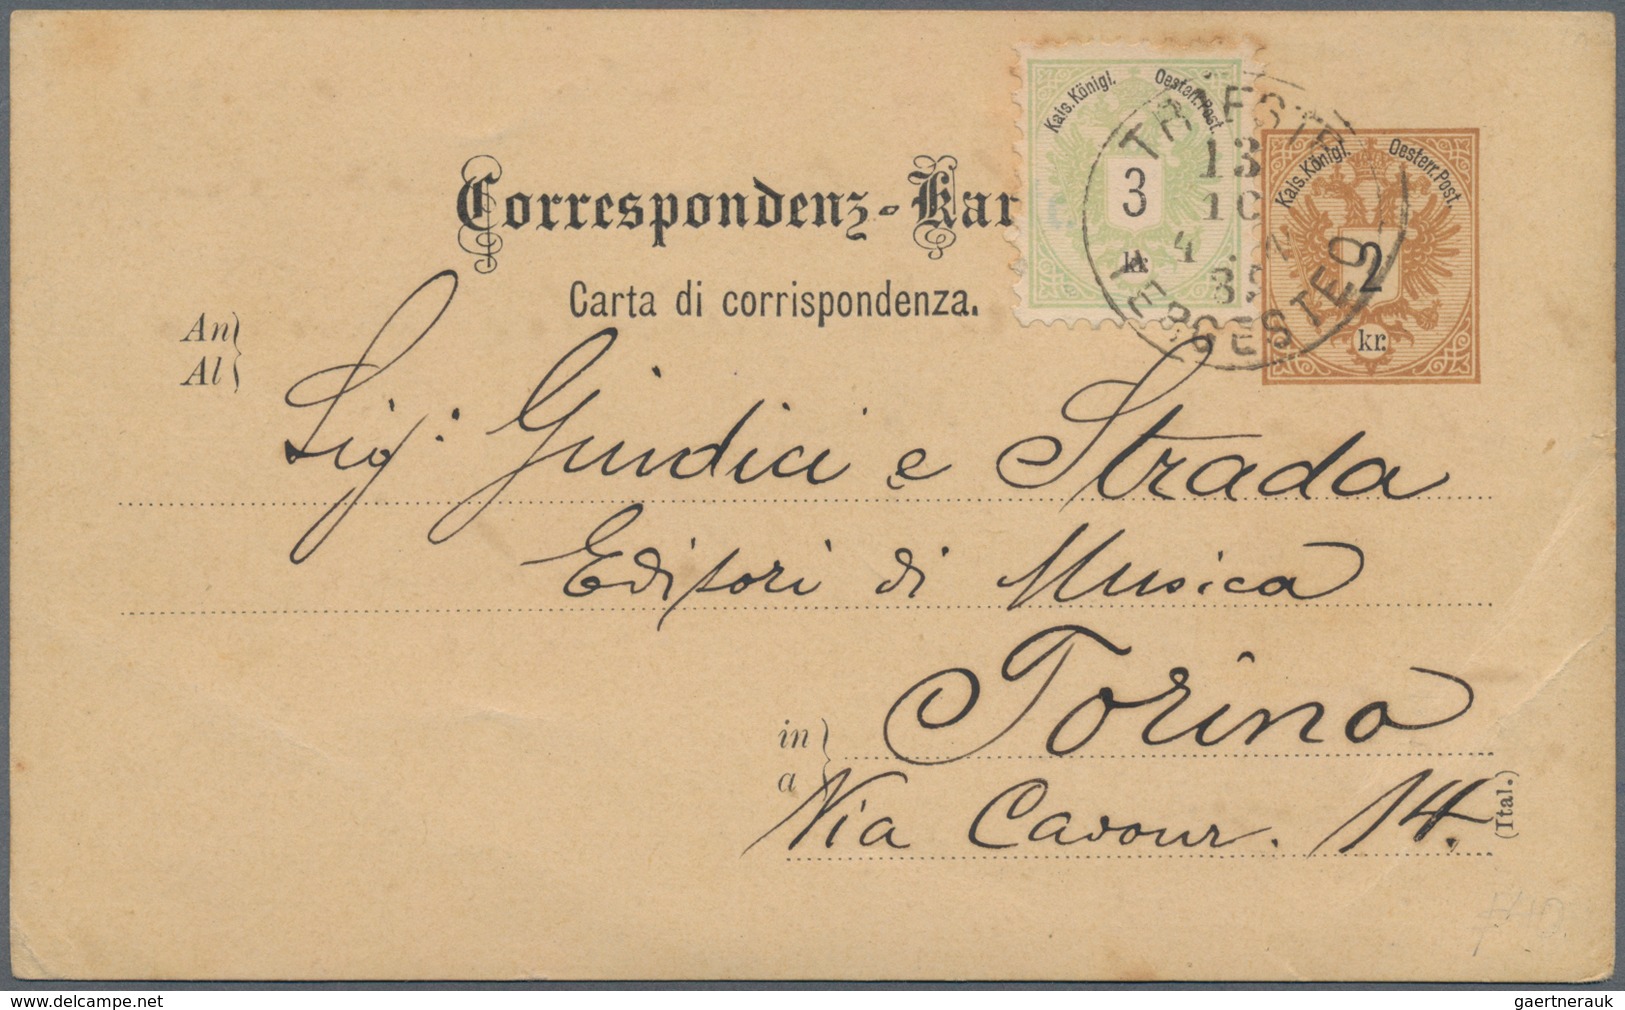 Correspondenz-Kar
Carta di corrispondenza.
Kais. Königl. Oesterr. Post.
3
kr.
TRIESTE
13
10
4
TERGESTEO
Kais. Königl. Oesterr. Post.
2
kr.
An
Al
Sig: Giudici e Strada
Editori di Musica
in
a
Torino
Via Cavour. 14.
(Ital.)
gaertnerauk @ delcampe.net